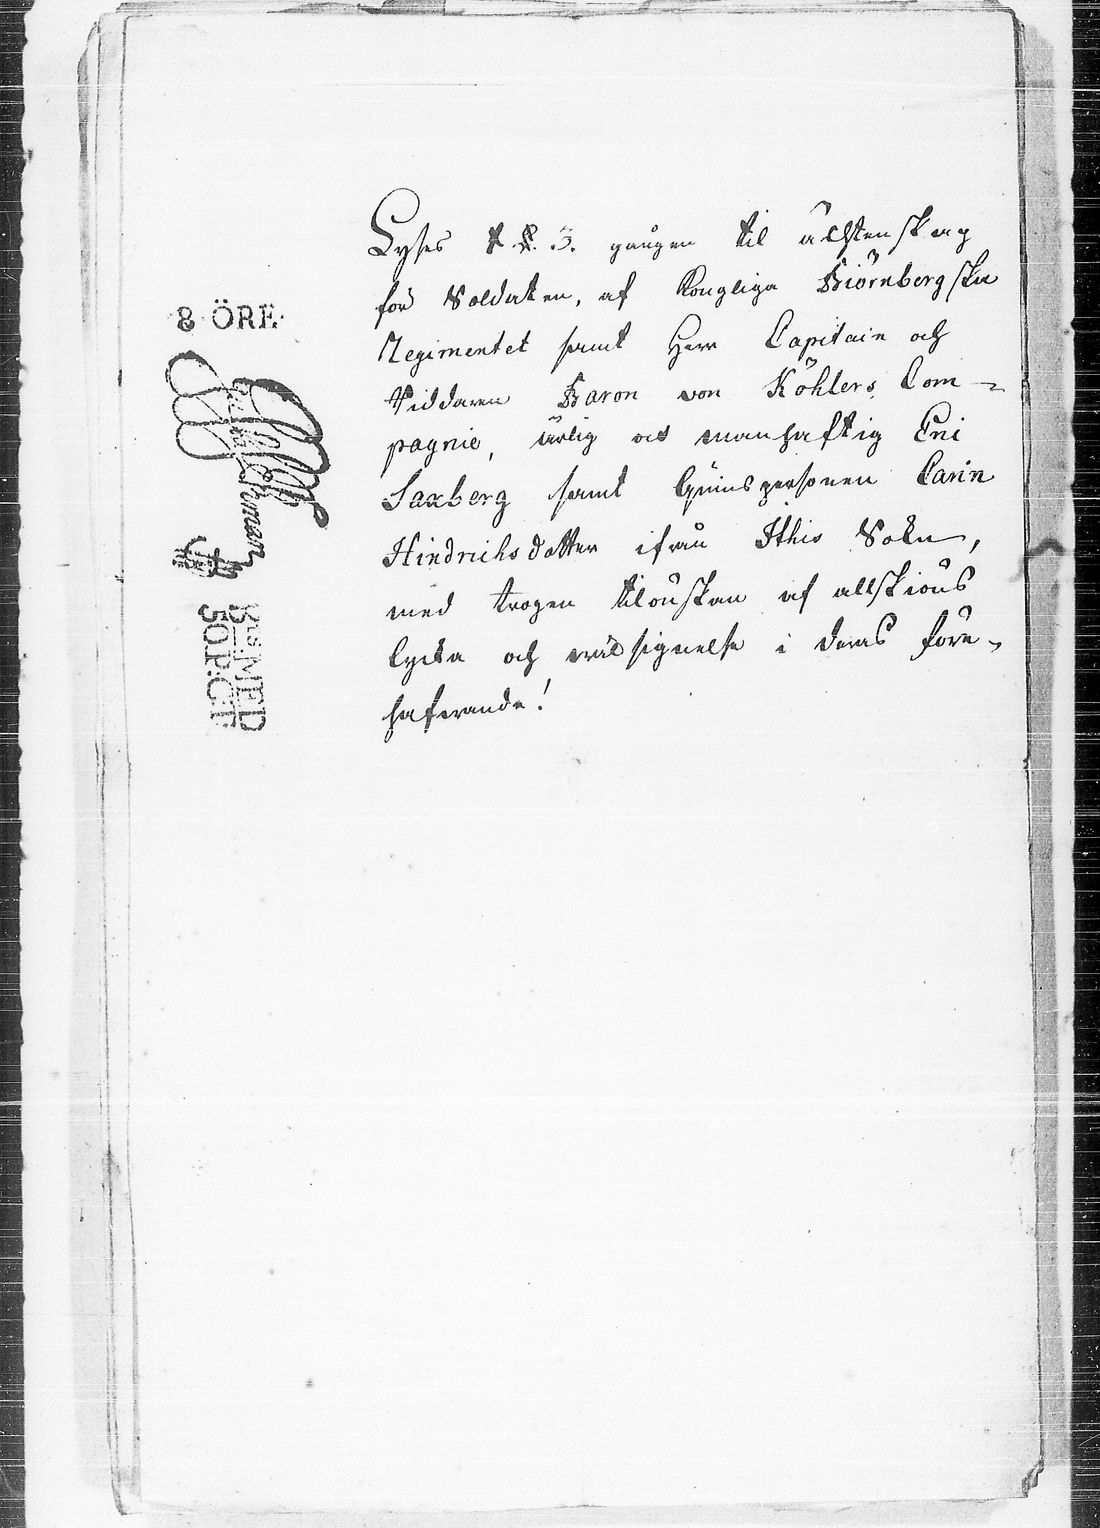 Lyses 1. 2. 3. gången til äcktenskap
för Soldaten, af Kongliga Biörnbergska
Regimentet samt Herr Capitain och
Riddaren Baron von Köhlers Com-
pagnie, ärlig och manhaftig Eric
Saxberg samt Qvinspersonen Carin
Hindrichsdotter ifrån Ithis Sokn,
med trogen tilönskan af allskiöns
lycka och wälsignelse i deras före-
hafwande!
8 ÖRE
S:MT MED
50.P:CT